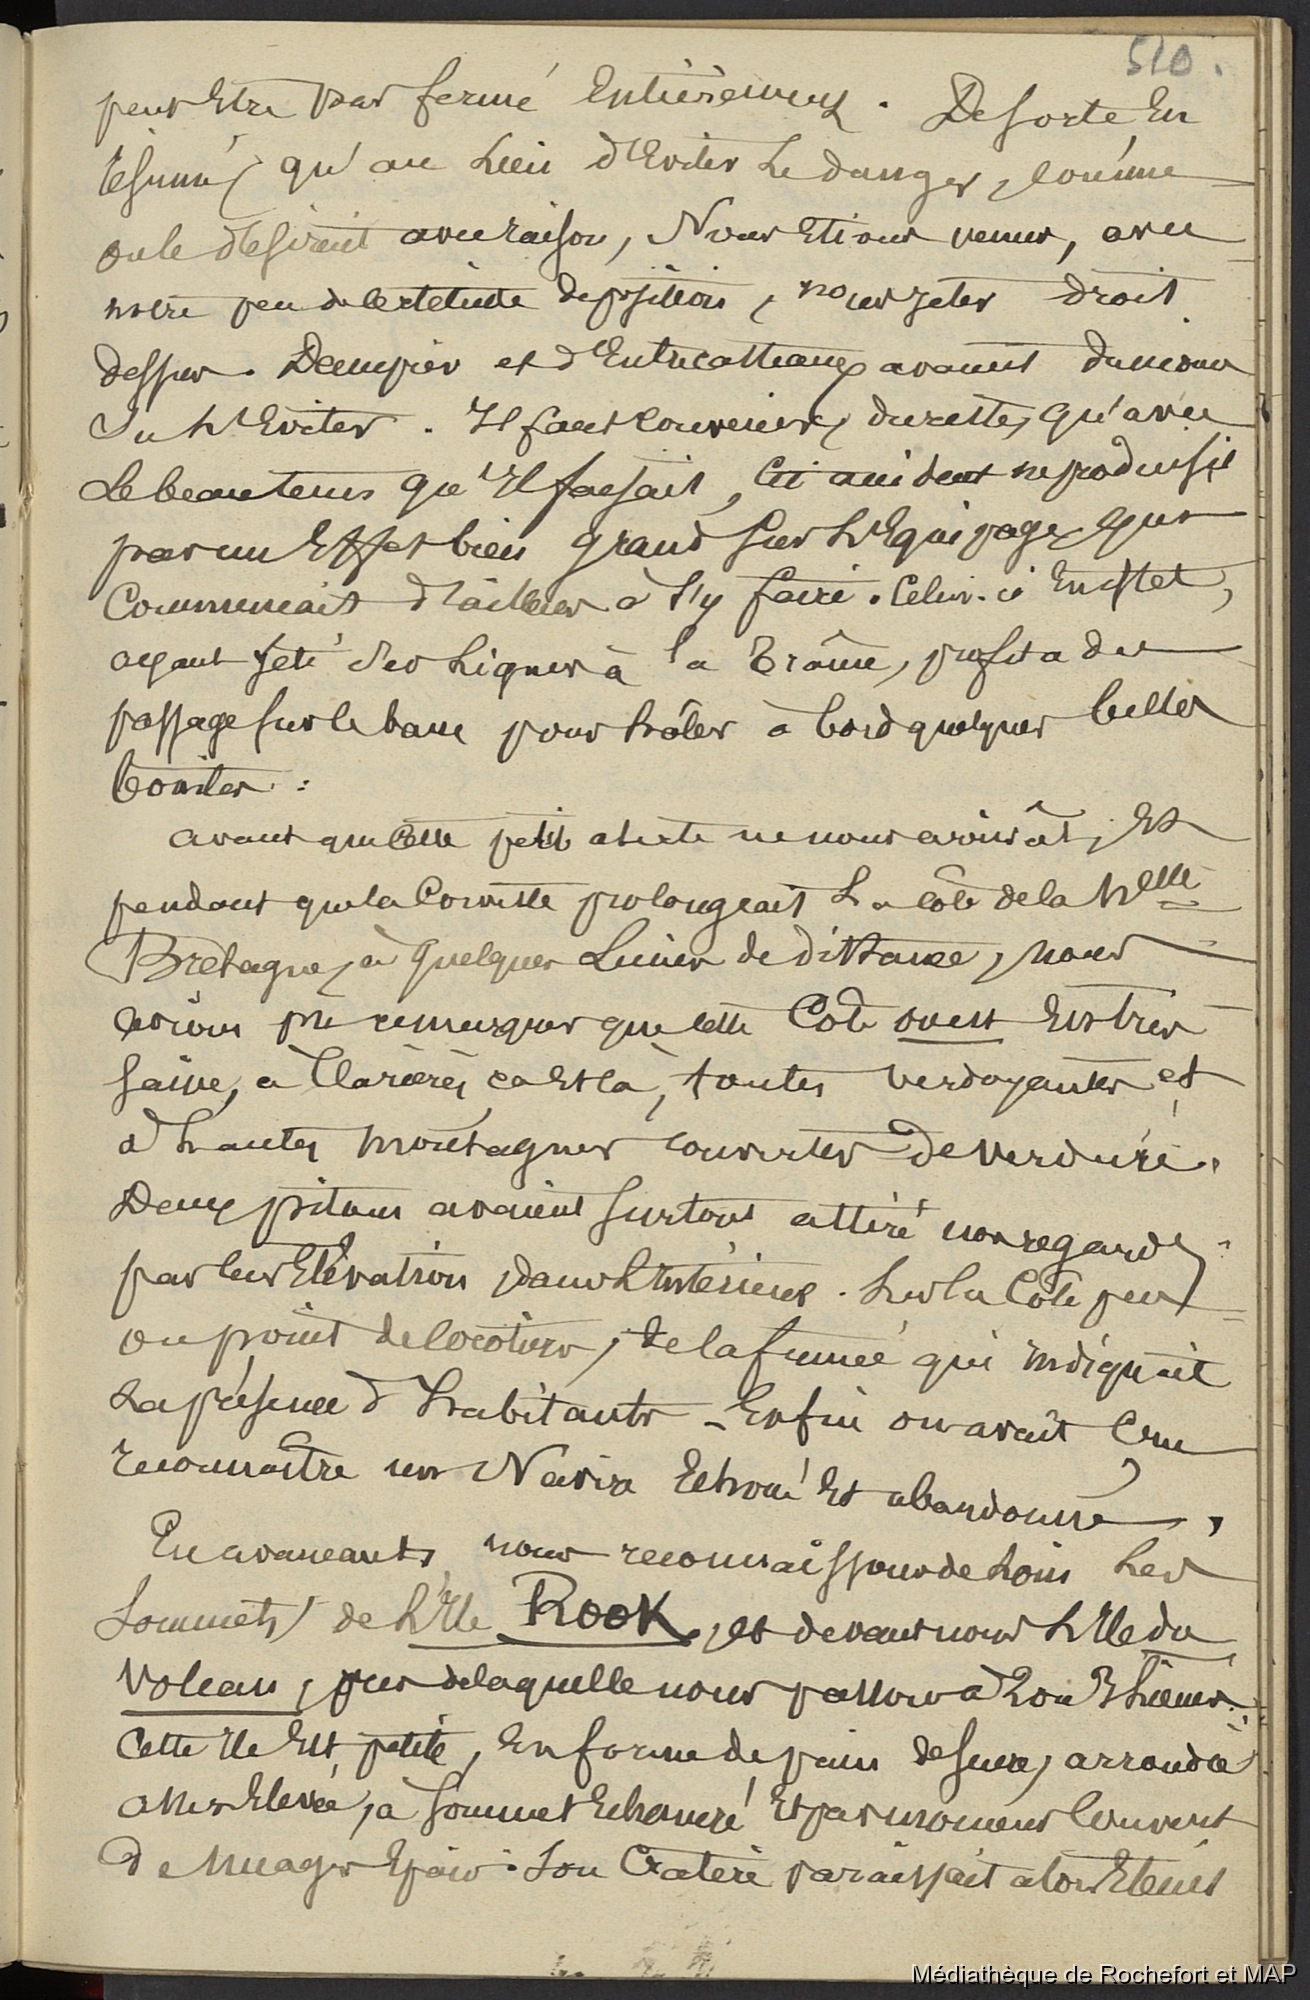 510.
peut Etre pas fermé Entièrement. De sorte En
résumé, qu'au Lieu d'Eviter Le danger, comme
on le désirait avec raison, Nous Etions venus, avec
notre peu de certitude de position, nous jeter droit
dessus. Dampier et d'Entrecasteaux avaient du moins
su L'Eviter. Il faut convenir, du reste, qu'avec
Le beau tems qu'Il faisait, cet accident ne produisit
pas un Effet bien grand sur L'Equipage, qui
Commençait d'ailleurs à s'y faire. Celui-ci En effet,
ayant jeté des Lignes à la Traîne, profita du
passage sur le banc pour hâler à bord quelques belles
bonites:
avant que Cette petite alerte ne nous arrivât, Et
pendant que la Corvette prolongeait La côte de la Nelle
Bretagne, à quelques Lieues de distance, nous
avions pu remarquer que cette Côte ouest Est très
saine, à Clarières ça et là, toutes verdoyantes et
à hautes montagnes couvertes de verdure.
Deux pitons avaient surtout attiré nos regards
par leur Elévation, dans L'Intérieur. Sur la Côte peu
ou point de Cocotiers, de la fumée qui indiquait
La présence d'habitants - Enfin on avait Cru
reconnaître un Navire Echoué Et abandonné,
En avançant, nous reconnaissons de Loin Les
Sommets de L'Ile ROOK, et devant nous L'Ile du
Volcan, près de laquelle nous passons à
Cette Ile Est petite, En forme de pain de sucre, arrondie
assez Elevée, à sommet Echancré Et par moment Couvert
de Nuages Epais. Son Cratère paraissait alors Eteint
Médiathèque de Rochefort et MAP